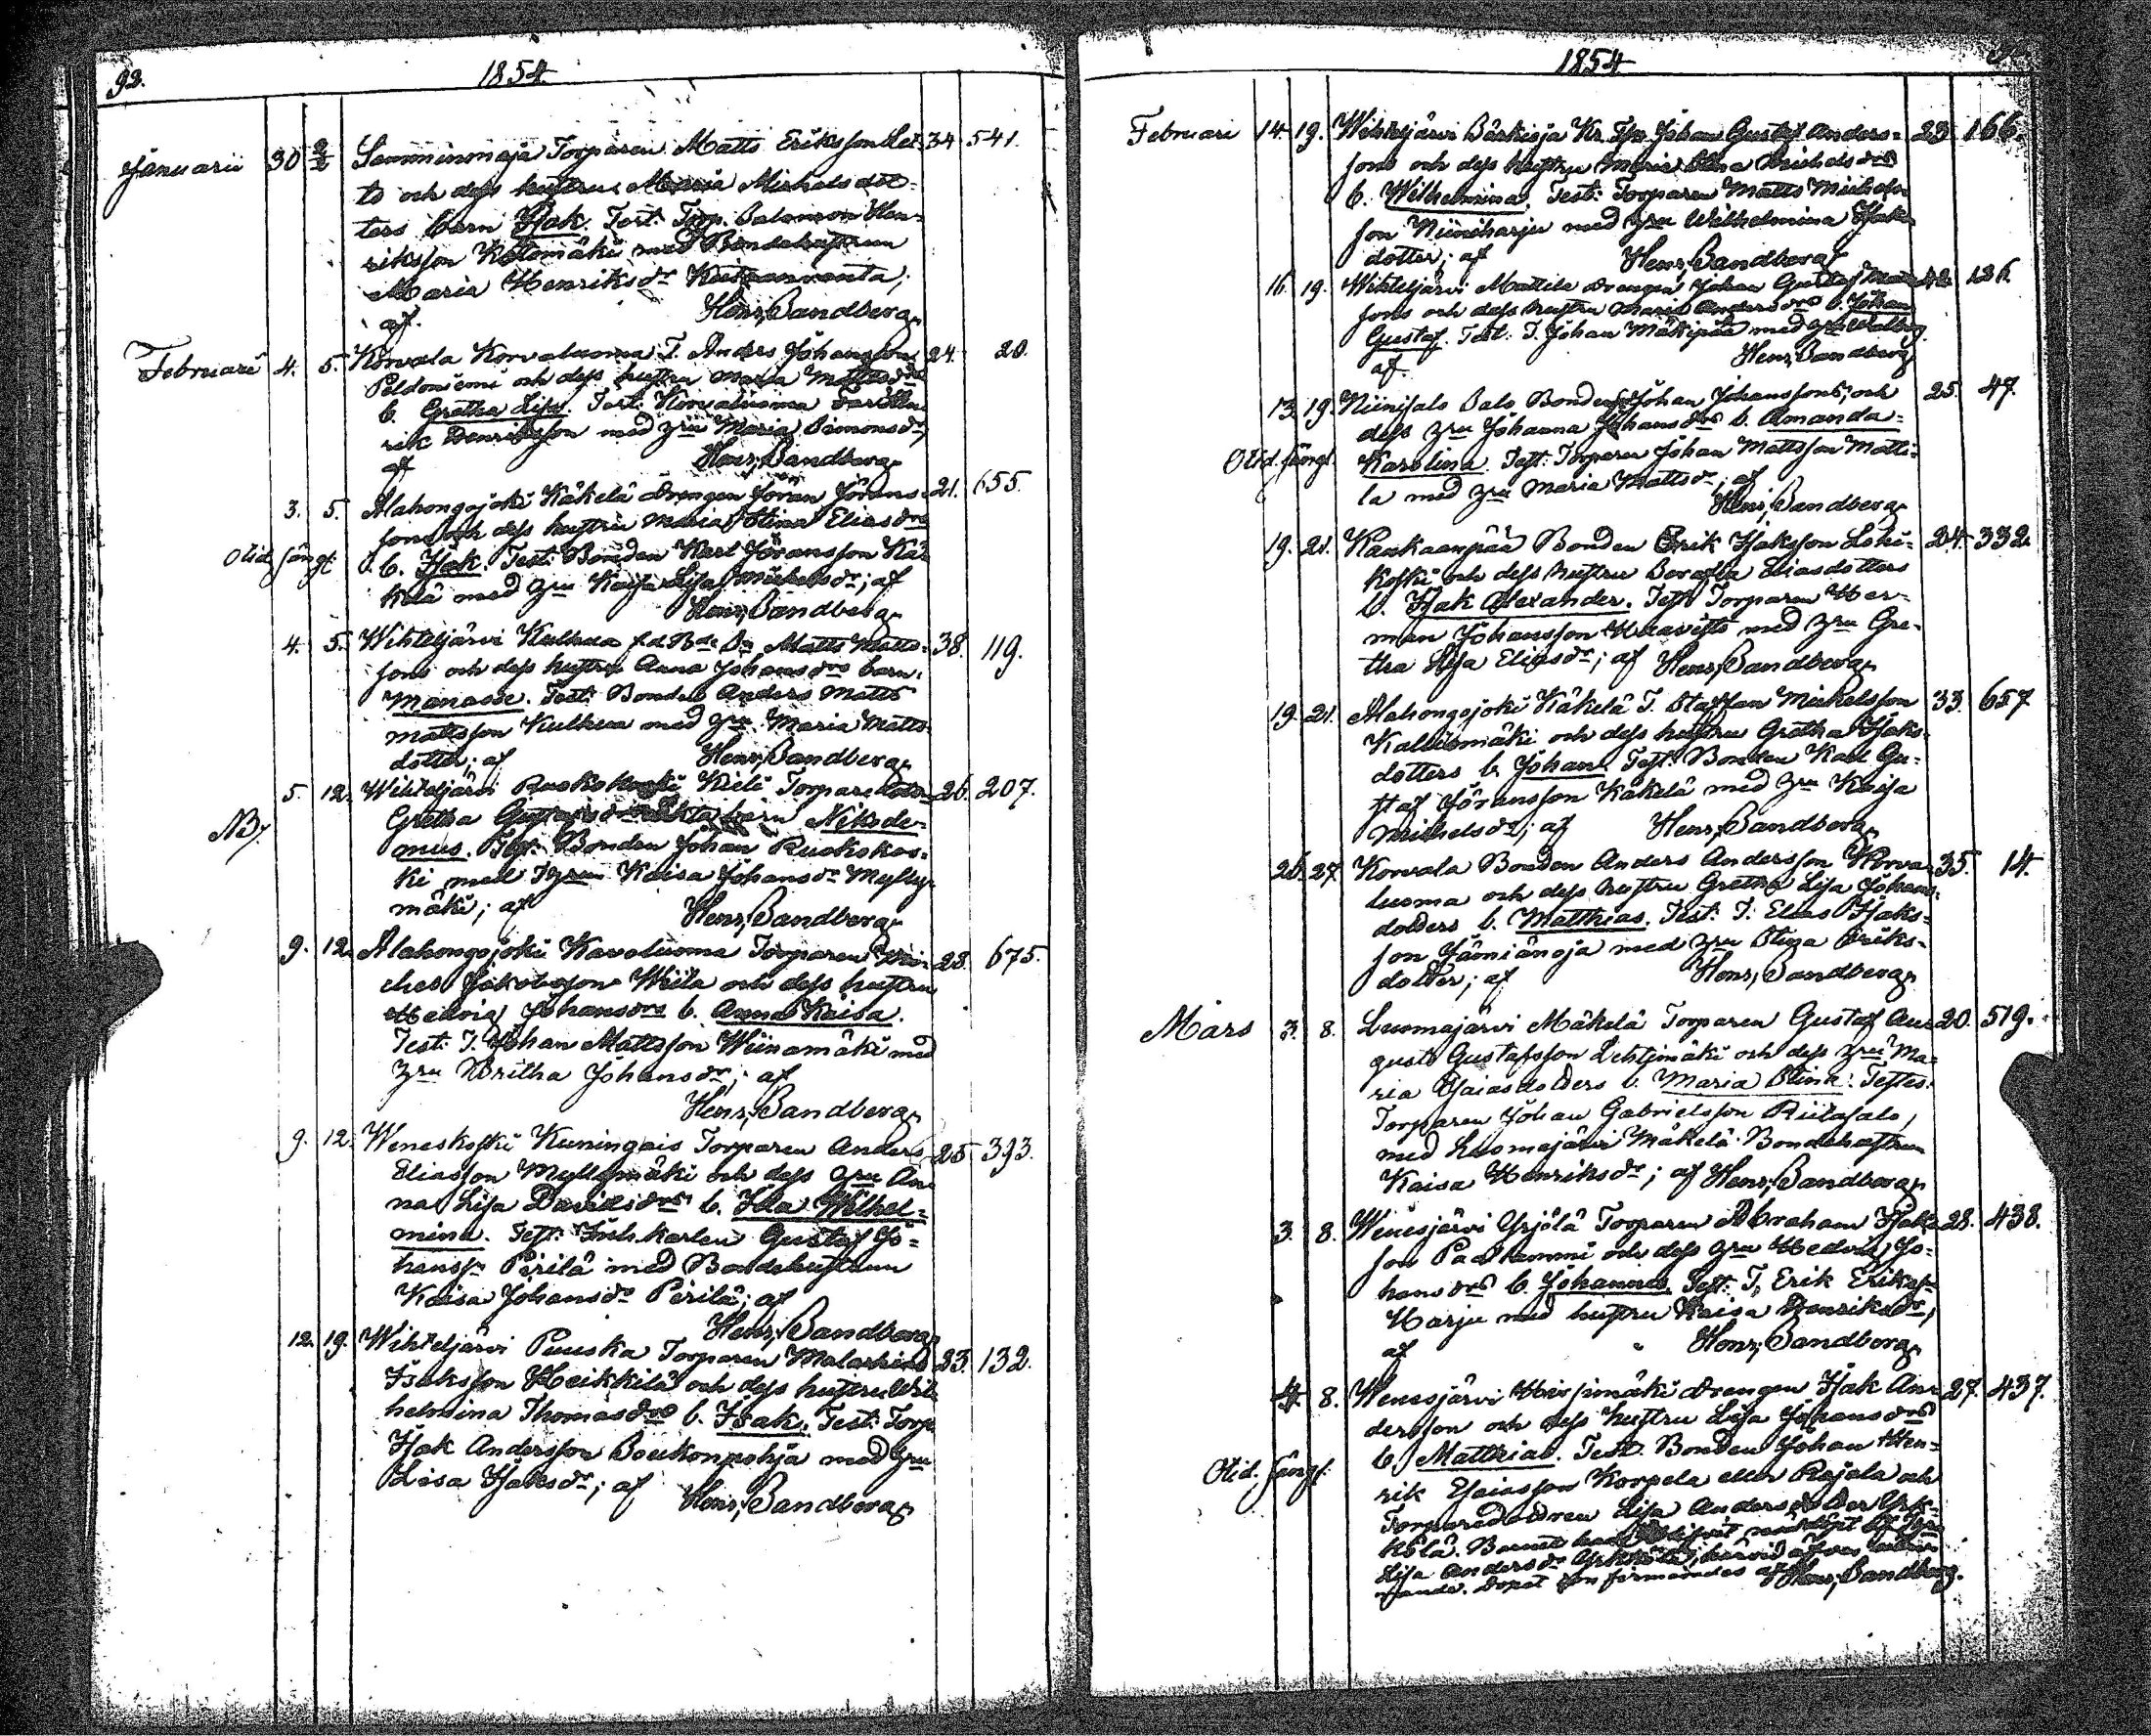 92.
1854.
Januarii 30 2/2 Samminmaja Torparen Matts Eriksson Leh- 34 541.
to och dess hustru Maria Michelsdot-
ters barn Isak. Test: Torp. Salomon Hen-
riksson Ketomäki med Bondehustrun
Maria Henriksdr
af. Henr. Sandberg.
Februari 4. 5. Korvala Korvaluoma T. Anders Johansson 24. 20.
Peldoniemi och dess hustru Maria Mattsdrs
b. Gretha Lisa. Test: Korvaluoma
rik Henriksson med hru Maria Simonsdr;
af Henr. Sandberg.
3. 5. Alahongojoki Käkelä Drengen Jöran Jörans- 21. 655.
sons och dess hustru Maria Stina Eliasdrs
Otid. fångt. b. Isak. Test: Bonden Karl Jöransson Kä-
kelä med hru Kaisa Lisa Michelsdr; af
Henr. Sandberg.
4. 5. Wihteljärvi Kulhua f.d. Bde Sn Matts Matts- 38. 119.
sons och dess hustru Anna Johansdrs barn
Manasse. Test: Bonden Anders Matts
Mattsson Kulhua med hru Maria Matts-
dotter; af Henr. Sandberg.
5. 12. Wihteljärvi Ruokokoski Kieli Torparedotter 26. 207.
NB. Gretha Gustafsdrs barn Nikode-
mus. Test: Bonden Johan Ruokokos-
ki med Kaisa Johansdr Mylly-
mäki; af Henr. Sandberg.
9. 12. Alahongojoki Kavoluoma Torparen Mi- 28. 675.
chel Jakobsson Wiila och dess hustru
Hedvig Johansdrs b. Anna Kaisa.
Test: T. Johan Mattsson Wiinamäki med
hru Britha Johansdr; af
Henr. Sandberg.
9. 12. Weneskoski Kuningais Torparen Anders 25. 393.
Eliasson Myllymäki och dess hru An-
na Lisa Davidsdrs b. Ida Wilhel-
mina. Test: Inh.karlen Gustaf Jo-
hanss. Perilä med Bondehustrun
Kaisa Johansdr Perilä; af
Henr. Sandberg.
12. 19. Wihteljärvi Puuska Torparen Malachias 23. 132.
Isaksson Heikkilä och dess hustru Wil-
helmina Thomasdrs b. Isak. Test: Torp.
Isak Andersson Soukonpohja med hru
Lisa Isaksdr; af Henr. Sandberg.
1854
Februari 14. 19. Wihteljärvi Särkioja Kr. Tpr Johan Gustaf Anders- 23. 166.
sons och dess hustru Maria Stina Michelsdrs
b. Wilhelmina. Test: Torparen Matts Michels-
son Niiniharju med hru Wilhelmina Isaks-
dotter; af Henr. Sandberg.
16. 19. Wihteljärvi Mattila Drengen Johan Gustaf 136.
sons och dess hustru Maria Andersdrs b. Johan
Gustaf. Test: T. Johan Mäkipää med hru Walborg
af. Henr. Sandberg
13. 19. Niinisalo Salo Bonden Johan Johanssons och 25. 47.
dess hru Johanna Johansdrs b. Amanda
Otid. fångt. Karolina. Test: Torparen Johan Mattsson Matti-
la med hru Maria Mattsdr; af
Henr. Sandberg.
19. 21. Kankaanpää Bonden Erik Isaksson Lohi- 24. 332.
koski och dess hustru Serafia Eliasdotters
b. Isak Alexander. Test: Torparen Her-
man Johansson Haavisto med hru Gre-
tha Lisa Eliasdr; af Henr. Sandberg.
19. 21. Alahongojoki Käkelä T. Staffan Michelsson 33. 657
Kalliomäki och dess hustru Gretha Isaks-
dotters b. Johan. Test: Bonden Karl Gu-
staf Jöransson Käkelä med hru Kaisa
Michelsdr; af Henr. Sandberg.
26. 27. Korvala Bonden Anders Andersson Korva- 35. 14.
luoma och dess hustru Gretha Lisa Johans-
dotters b. Matthias. Test: T. Elias Isaks-
son Jämiänoja med hru Stina Eriks-
dotter; af Henr. Sandberg.
Mars 3. 8. Luomajärvi Mäkelä Torparen Gustaf Au- 20. 519.
gust Gustafsson Lehtimäki och dess hru Ma-
ria Esaiasdotters b. Maria Stina. Testes:
Torparen Johan Gabrielsson Riitasalo,
med Luomajärvi Mäkelä Bondehustrun
Kaisa Henriksdr; af Henr. Sandberg.
3. 8. Wenesjärvi Yrjölä Torparen Abraham Isaks- 28. 438.
son Pastammi och dess hru Hedvig Jo-
hansdrs b. Johannes. Test: T. Erik Eriksson
Harju med hustru Kaisa Henriksdr;
af Henr. Sandberg.
4. 8. Wenesjärvi Hirsimäki Drengen Isak An- 27. 437.
dersson och dess hustru Lisa Johansdrs
b. Matthias. Test: Bonden Johan Hen-
Otid. fångt. rik Esaiasson Korpela eller Rajala och
Torparedottren Lisa Andersdotter Yrk-
kölä. Barnet had blifvit nöddöpt af
Lisa Andersdr Yrkkölä,
Dopet af Henr. Sandberg.